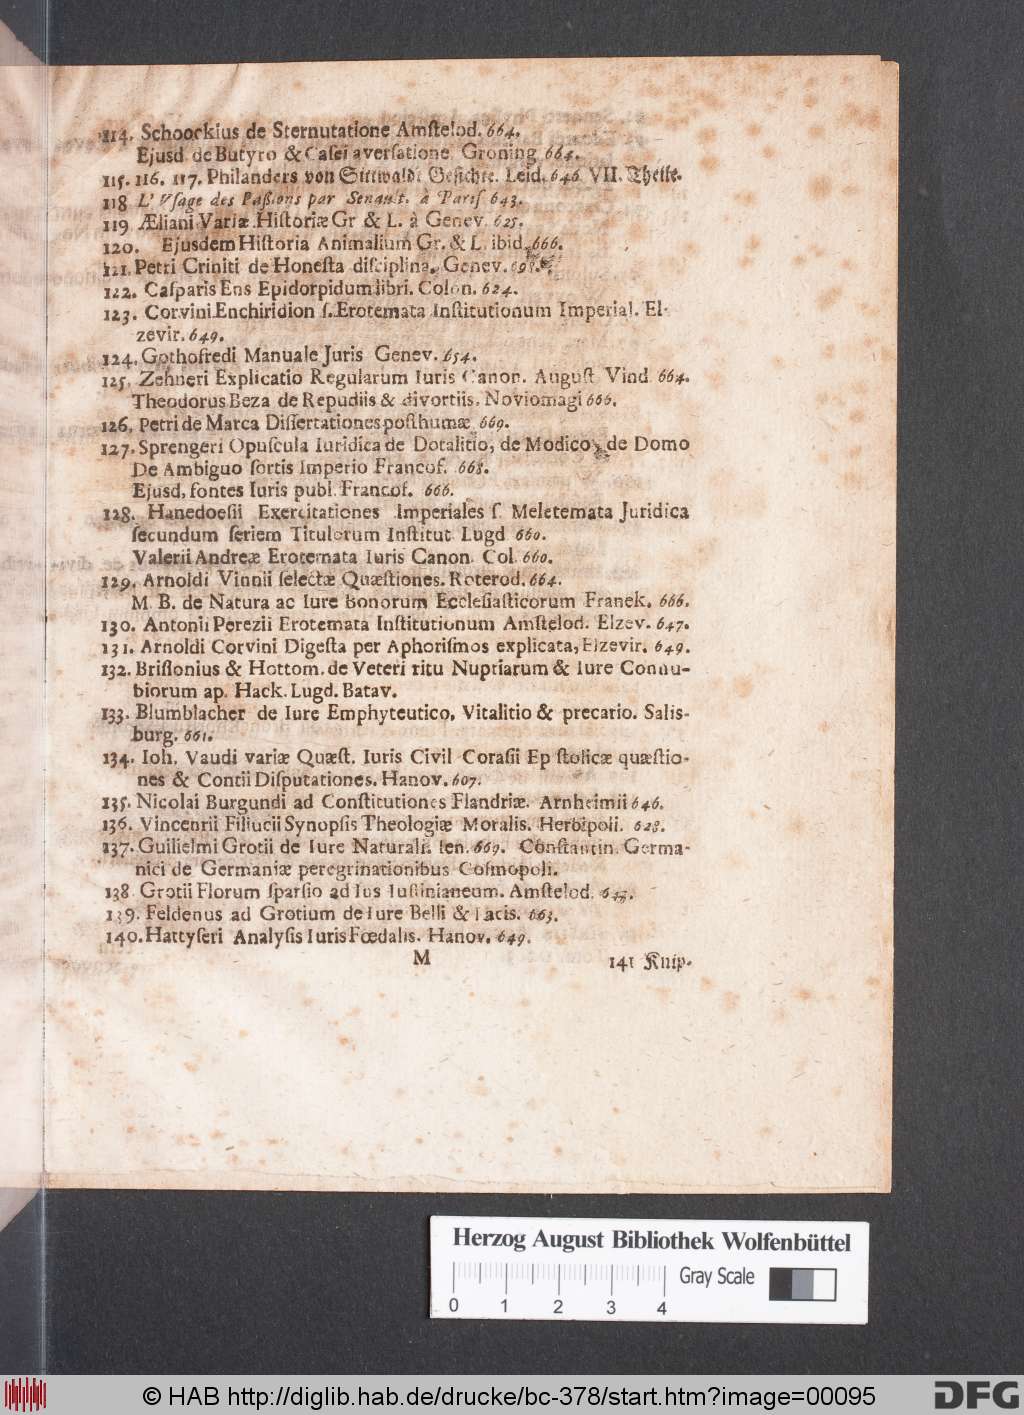 114. Schoockius de Sternutatione Amſtelod. 664.
Ejusd. de Butyro & Caſei averſatione Groning 664.
115. 116. 117. Philanders von Sittwald: Geſichte. Leid. 646 VII. Theile.
118 L' Vſage des Paßions par Senault. à Pariſ 643.
119 Æliani Variæ Hiſtoriæ Gr & L. à Genev. 625.
120. Ejusdem Hiſtoria Animalium Gr. & L. ibid. 666.
121. Petri Criniti de Honeſta diſciplina. Genev.
122. Caſparis Ens Epidorpidum libri. Colon. 624.
123. Corvini Enchiridion ſ. Erotemata Inſtitutionum Imperial. El-
zevir. 649.
124. Gothofredi Manuale Juris Genev. 654.
125. Zehneri Explicatio Regularum Iuris Canon. Auguſt Vind 664.
Theodorus Beza de Repudiis & divortiis. Noviomagi 666.
126. Petri de Marca Diſſertationes poſthumæ 669.
127. Sprengeri Opuſcula Iuridica de Dotalitio, de Modico, de Domo
De Ambiguo ſortis Imperio Francof. 668.
Ejusd, fontes Iuris publ. Francof. 666.
128. Hanedoeſii Exercitationes Imperiales ſ. Meletemata Juridica
ſecundum ſeriem Titulorum Inſtitut Lugd 660.
Valerii Andreæ Erotemata Iuris Canon. Col. 660.
129. Arnoldi Vinnii ſelectæ Quæſtiones. Roterod. 664.
M. B. de Natura ac Iure Bonorum Eccleſiaſticorum Franek. 666.
130. Antonii Perezii Erotemata Inſtitutionum Amſtelod. Elzev. 647.
131. Arnoldi Corvini Digeſta per Aphoriſmos explicata, Elzevir. 649.
132. Briſſonius & Hottom. de Veteri ritu Nuptiarum & Iure Connu-
biorum ap. Hack. Lugd. Batav.
133. Blumblacher de Iure Emphyteutico, Vitalitio & precario. Salis-
burg. 661.
134. Ioh. Vaudi variæ Quæſt. Iuris Civil Coraſii Ep ſtolicæ quæſtio-
nes & Contii Diſputationes. Hanov. 607.
135. Nicolai Burgundi ad Conſtitutiones Flandriæ. Arnheimii 646.
136. Vincentii Filiucii Synopſis Theologiæ Moralis. Herbipoli. 628.
137. Guilielmi Grotii de Iure Naturali. Ien. 669. Conſtantin. Germa-
nici de Germaniæ peregrinationibus Coſmopoli.
138 Grotii Florum ſparſio ad Ius Iuſtinianeum. Amſtelod.
139. Feldenus ad Grotium de Iure Belli & Pacis. 663.
140. Hattyſeri Analyſis Iuris Fœdalis. Hanov. 649.
M 141 Knip-
Herzog August Bibliothek Wolfenbüttel
Gray Scale
0 1 2 3 4
© HAB http://diglib.hab.de/drucke/bc-378/start.htm?image=00095
DFG